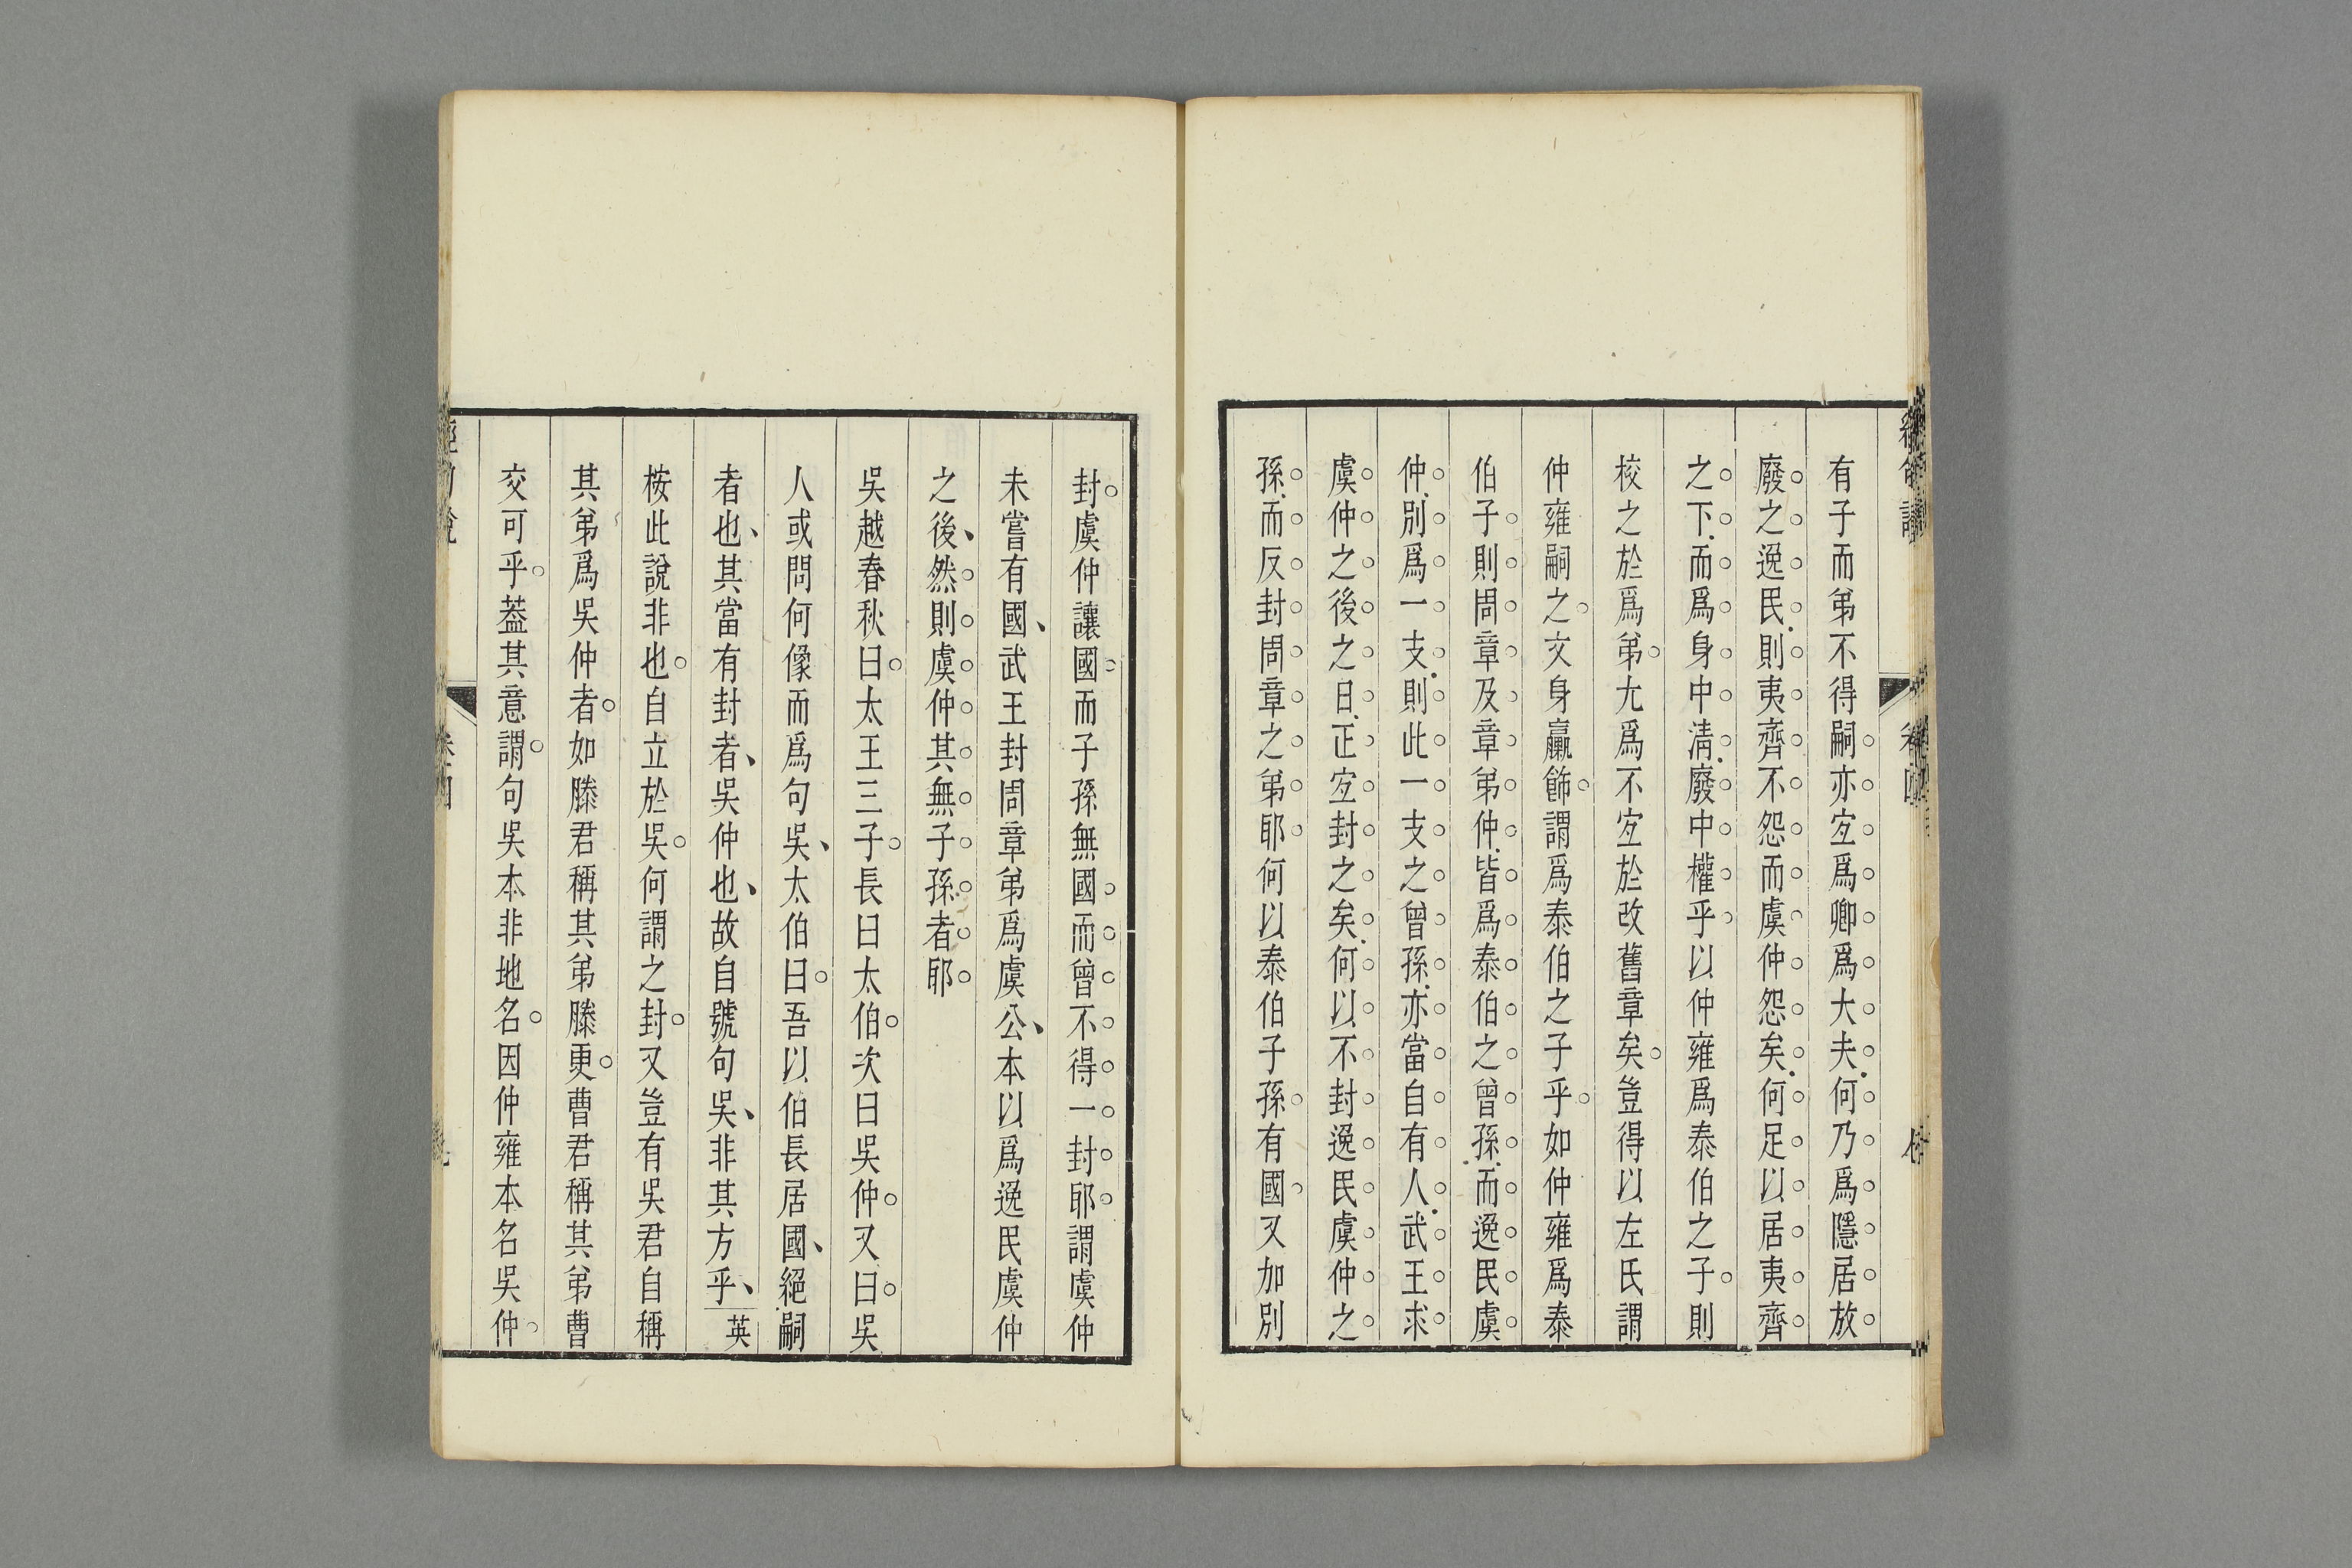 有子而弟不得嗣亦宐爲卿爲大夫何乃爲隱居放
廢之逸民則夷齊不怨而虞仲怨矣何足以居夷齊
之下而爲身中淸廢中權乎以仲雍爲泰伯之子則
校之於爲弟尢爲不宐於改舊章矣豈得以左氏謂
仲雍嗣之文身臝飾謂爲泰伯之子乎如仲雍爲泰
伯子則周章及章弟仲皆爲泰伯之曾孫而逸民虞
仲別爲一支則此一支之曾孫亦當自有人武王求
虞仲之後之日正宐封之矣何以不封逸民虞仲之
孫而反封周章之弟耶何以泰伯子孫有國又加別
封虞仲讓國而子孫無國而曾不得一封耶謂虞仲
未嘗有國武王封周章弟爲虞公本以爲逸民虞仲
之後然則虞仲其無子孫者耶
吳越春秋曰太王三子長曰太伯次曰吳仲又曰吳
人或問何像而爲句吳太伯曰吾以伯長居國絕嗣
者也其當有封者吳仲也故自號句吳非其方乎英
桉此說非也自立於吳何謂之封又豈有吳君自稱
其弟爲吳仲者如滕君稱其弟滕更曹君稱其弟曹
交可乎葢其意謂句吳本非地名因仲雍本名吳仲